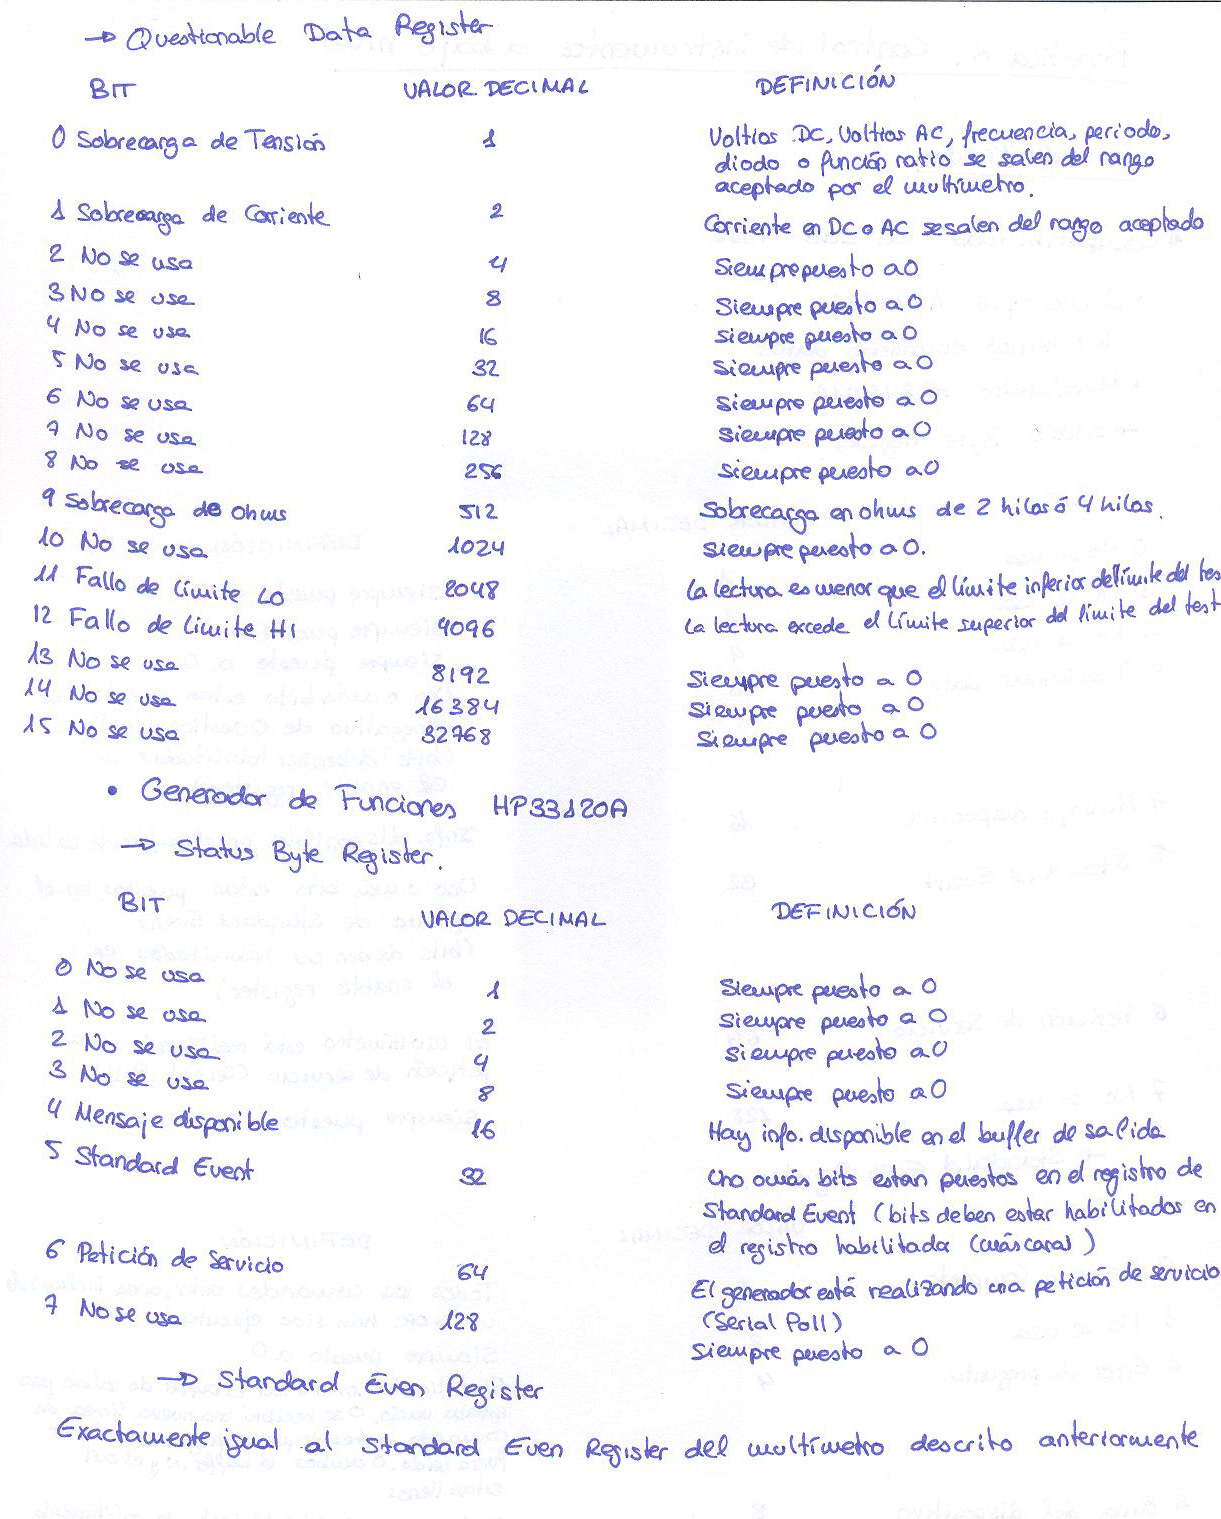 → Questionable Data Register
BIT VALOR DECIMAL DEFINICIÓN
0 Sobrecarga de Tensión 1 Voltios DC, Voltios AC, frecuencia, periodo,
diodo o función ratio se salen del rango
aceptado por el multímetro.
1 Sobrecarga de Corriente 2 Corriente en DC o AC se salen del rango aceptado
2 No se usa 4 Siempre puesto a 0
3 No se usa 8 Siempre puesto a 0
4 No se usa 16 Siempre puesto a 0
5 No se usa 32 Siempre puesto a 0
6 No se usa 64 Siempre puesto a 0
7 No se usa 128 Siempre puesto a 0
8 No se usa 256 Siempre puesto a 0
9 Sobrecarga de ohms 512 Sobrecarga en ohms de 2 hilos ó 4 hilos.
10 No se usa 1024 Siempre puesto a 0.
11 Fallo de Límite LO 2048 La lectura es menor que el límite inferior del límite del tes
12 Fallo de Límite HI 4096 La lectura excede el límite superior del límite del test
13 No se usa 8192 Siempre puesto a 0
14 No se usa 16384 Siempre puesto a 0
15 No se usa 32768 Siempre puesto a 0
• Generador de Funciones HP33120A
→ Status Byte Register.
BIT VALOR DECIMAL DEFINICIÓN
0 No se usa 1 Siempre puesto a 0
1 No se usa 2 Siempre puesto a 0
2 No se usa 4 Siempre puesto a 0
3 No se usa 8 Siempre puesto a 0
4 Mensaje disponible 16 Hay info. disponible en el buffer de salida
5 Standard Event 32 Uno o más bits estan puestos en el registro de
Standard Event (bits deben estar habilitados en
el registro habilitada (máscara)
6 Petición de Servicio 64 El generador está realizando una petición de servicio
(Serial Poll)
7 No se usa 128 Siempre puesto a 0
→ Standard Even Register
Exactamente igual al Standard Even Register del multímetro descrito anteriormente